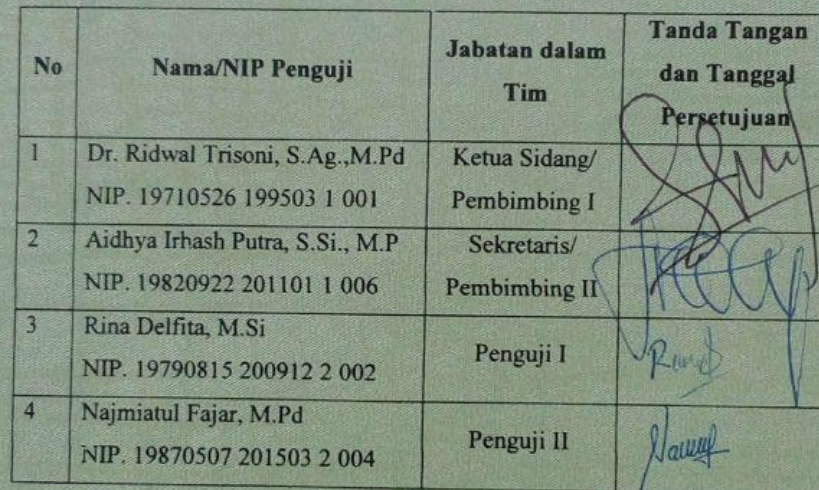 No
Nama/NIP Penguji
Jabatan dalam
Tim
Tanda Tangan
dan Tanggal
Persetujuan
1
Dr. Ridwal Trisoni, S.Ag.,M.Pd
NIP. 19710526 199503 1 001
Ketua Sidang/
Pembimbing I
2
Aidhya Irhash Putra, S.Si., M.P
NIP. 19820922 201101 1 006
Sekretaris/
Pembimbing II
3
Rina Delfita, M.Si
NIP. 19790815 200912 2 002
Penguji I
4
Najmiatul Fajar, M.Pd
NIP. 19870507 201503 2 004
Penguji II